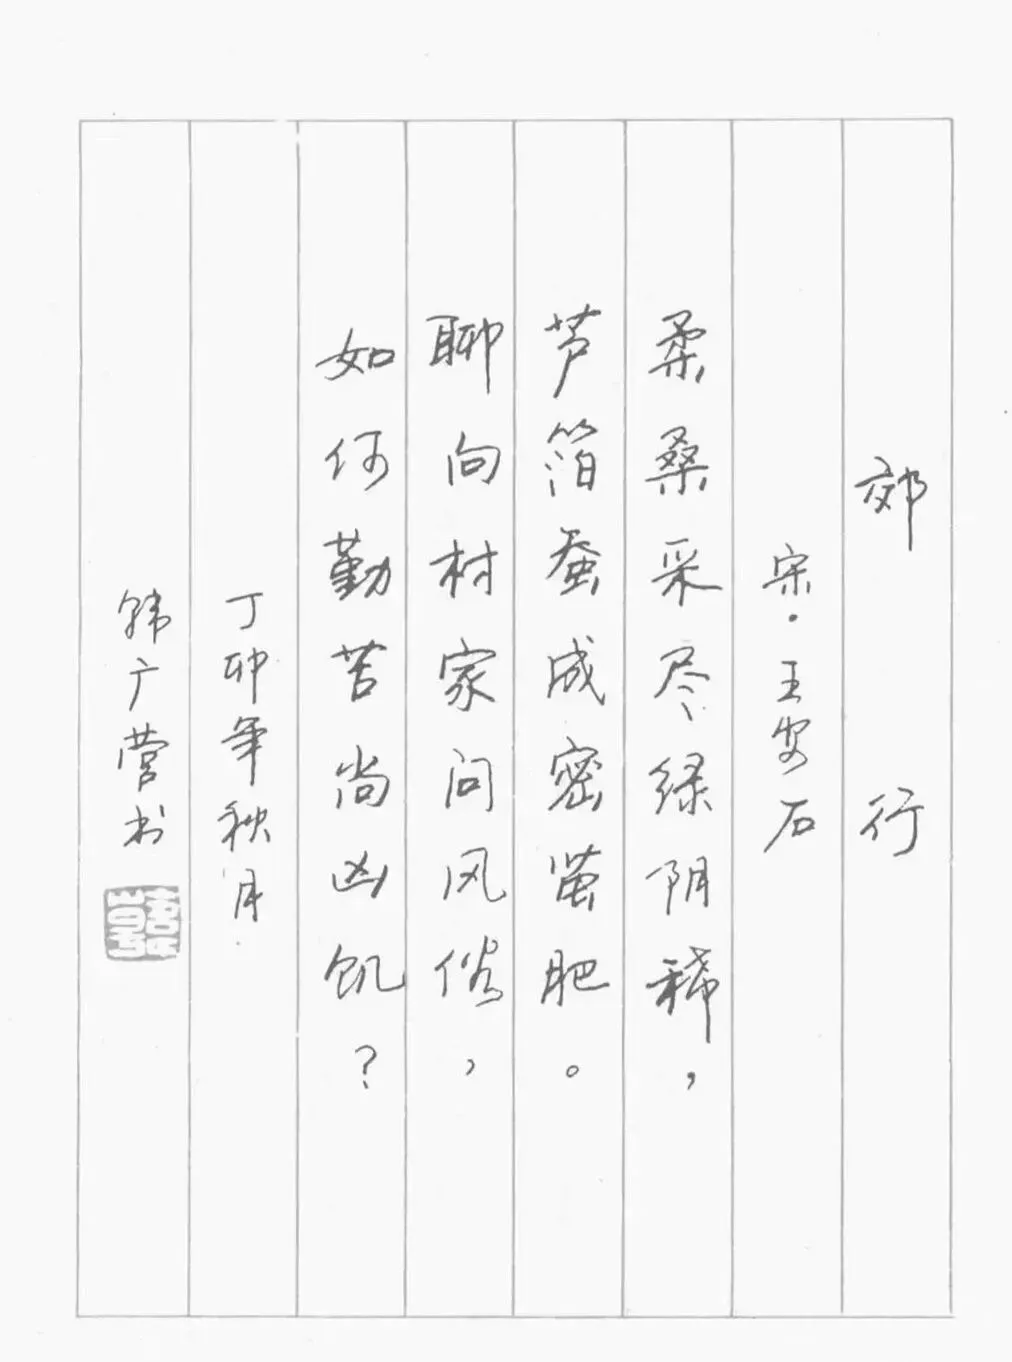 郊行
宋·王安石
柔桑采尽绿阴稀，
芦箔蚕成密茧肥。
聊向村家问风俗，
如何勤苦尚凶饥？
丁卯年秋月
韩广营书